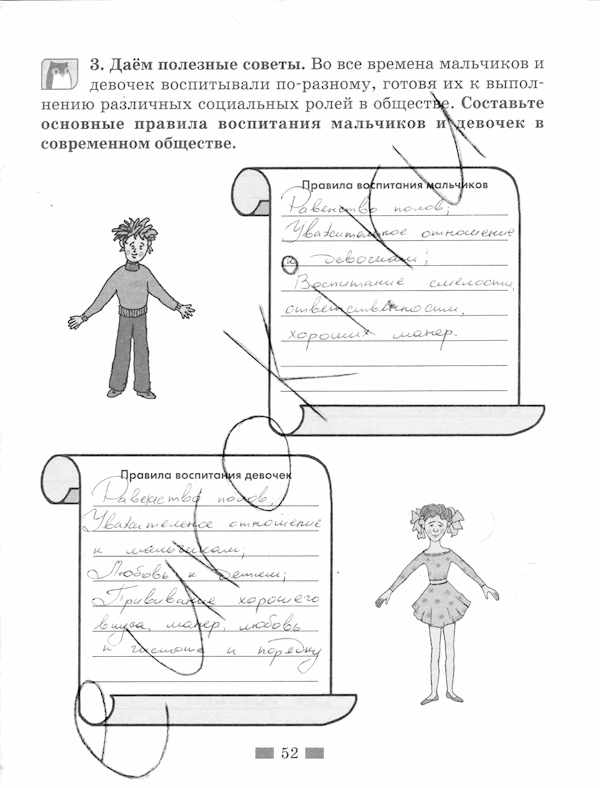 3. Даём полезные советы. Во все времена мальчиков и
девочек воспитывали по-разному, готовя их к выпол-
нению различных социальных ролей в обществе. Составьте
основные правила воспитания мальчиков и девочек в
современном обществе.
Правила воспитания мальчиков
Равенство полов;
Уважительное отношение
к девочкам;
Воспитание смелости,
ответственности,
хороших манер.
Правила воспитания девочек
Равенство полов;
Уважительное отношение
к мальчикам;
Любовь к детям;
Прививание хорошего
вкуса, манер, любовь
к чистоте и порядку
52